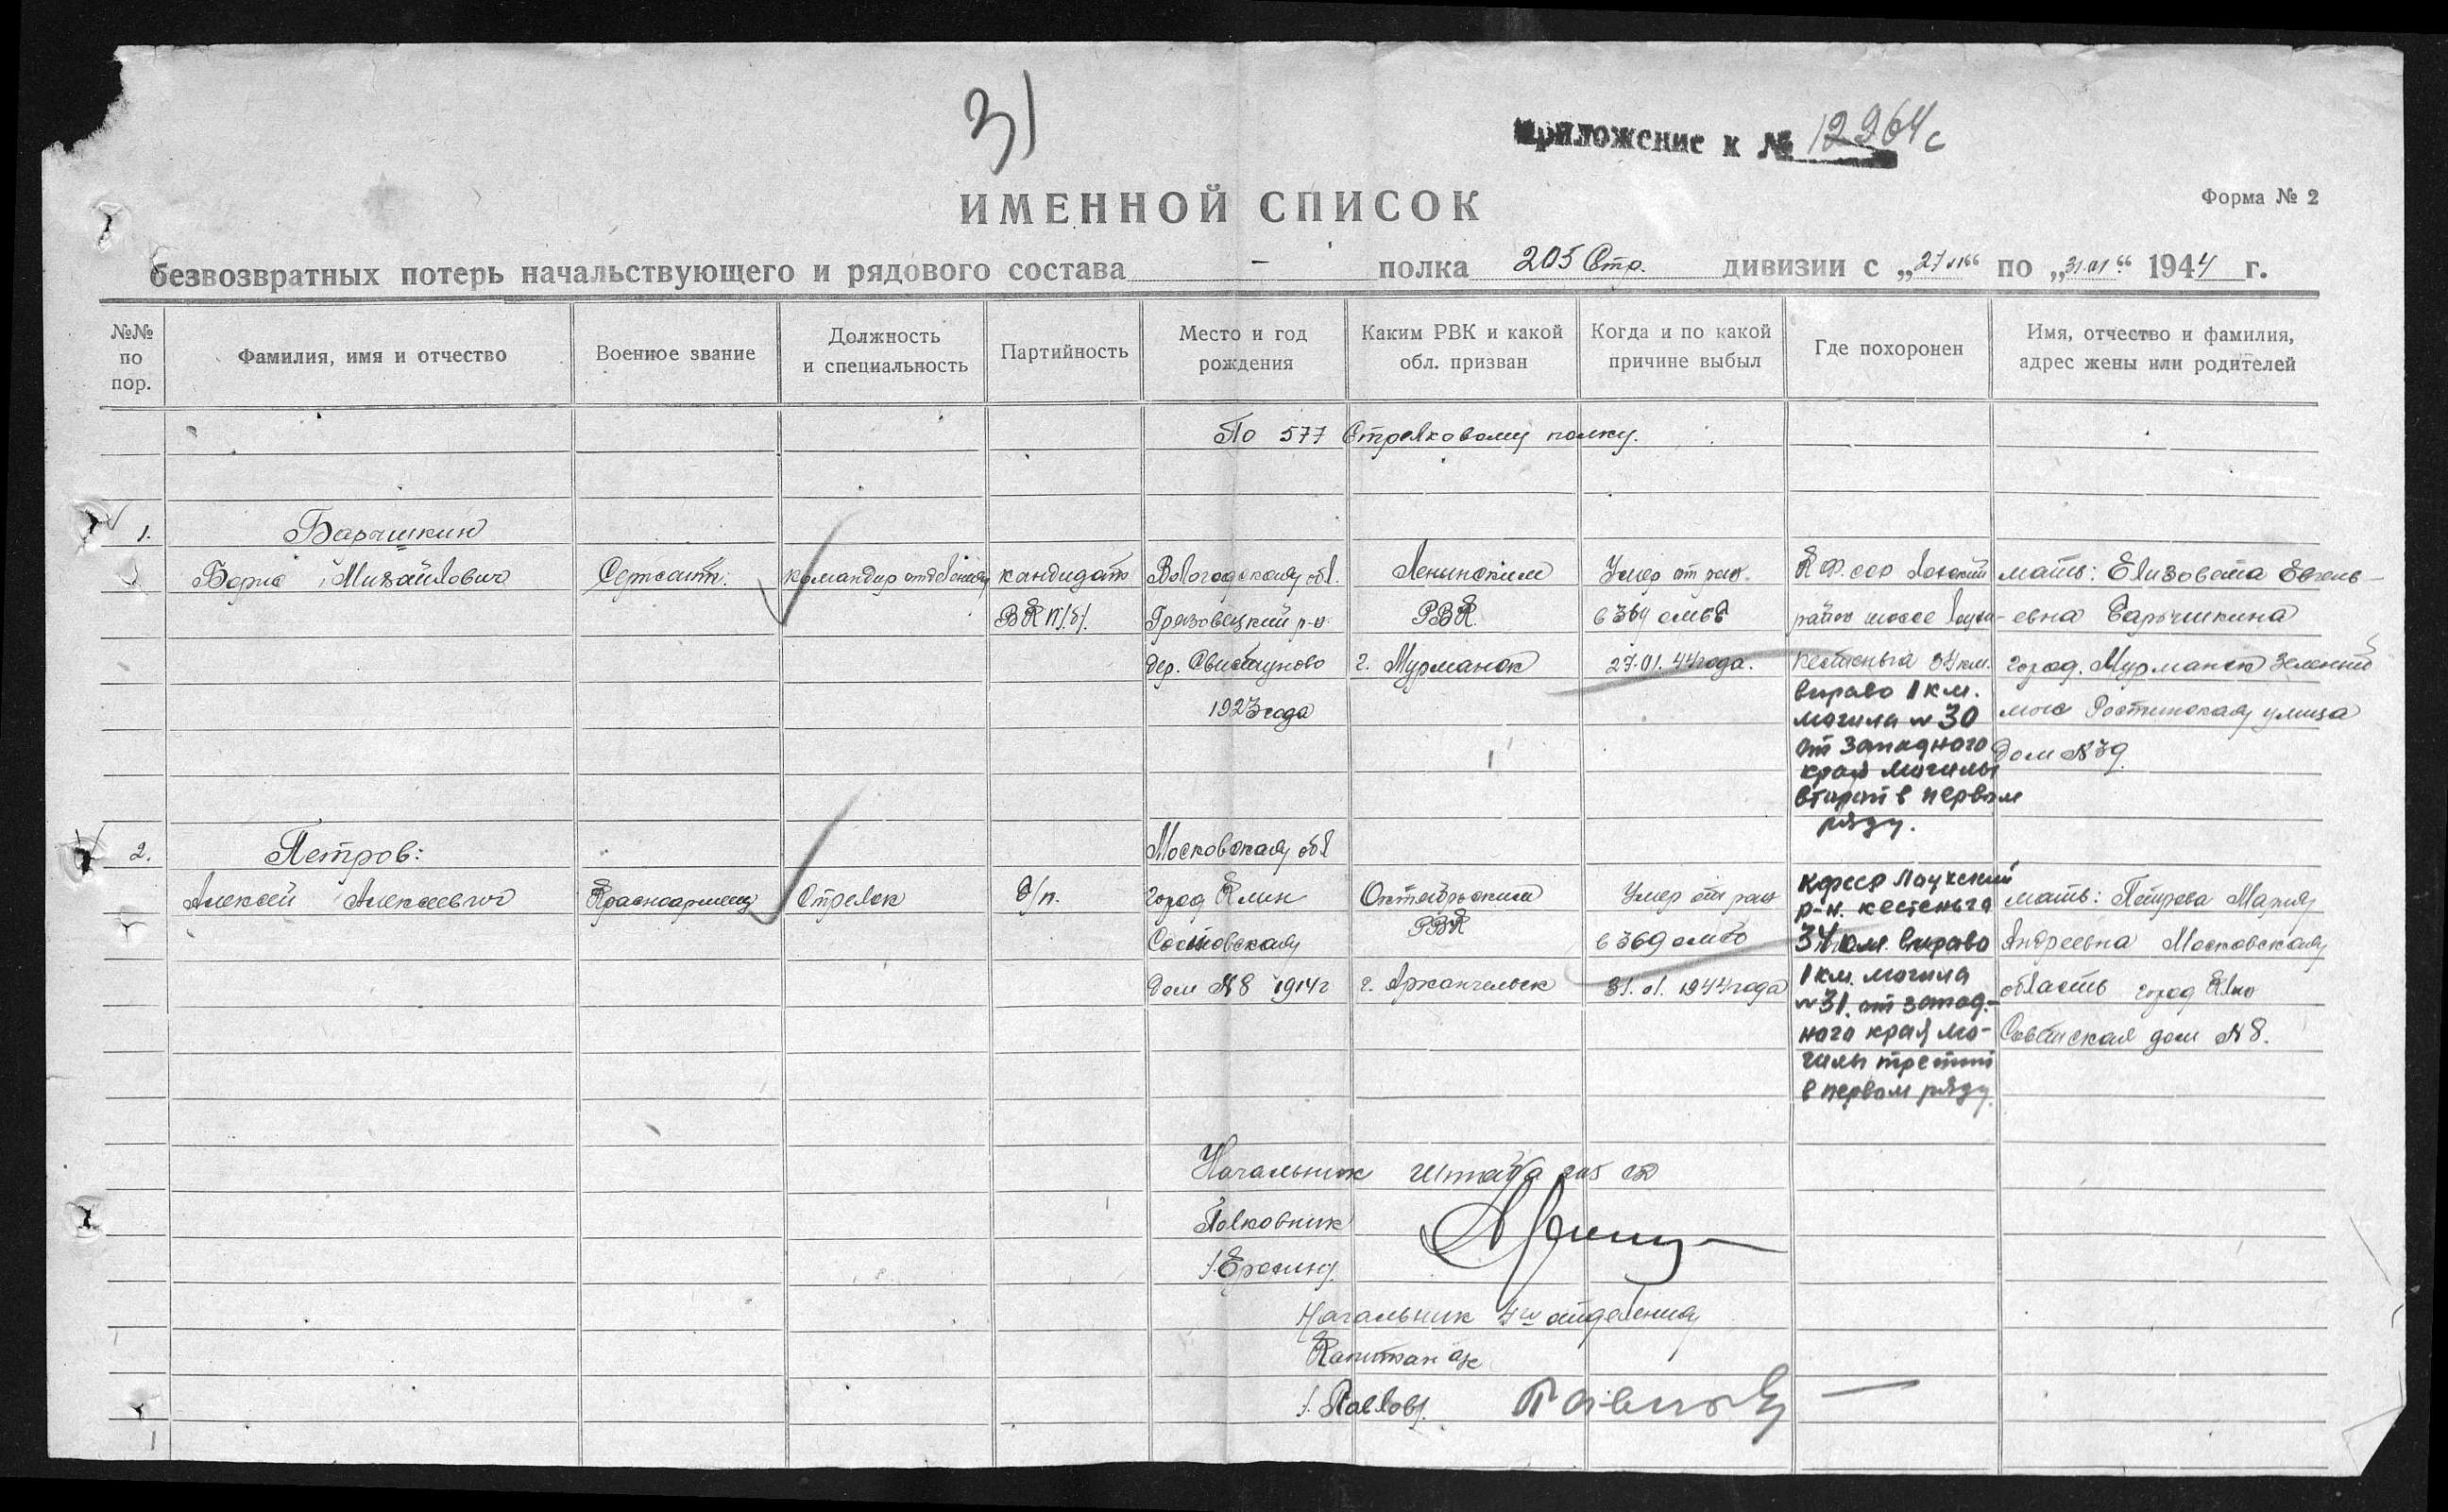 31
Приложение к № 12264с
ИМЕННОЙ СПИСОК
Форма № 2
безвозвратных потерь начальствующего и рядового состава - полка 205 Стр. дивизии с „27.01“ по „31.01“ 1944 г.
№№ по пор.
Фамилия, имя и отчество
Военное звание
Должность и специальность
Партийность
Место и год рождения
Каким РВК и какой обл. призван
Когда и по какой причине выбыл
Где похоронен
Имя, отчество и фамилия, адрес жены или родителей
По 577 Стрелковому полку.
1.
Барышкин
Борис Михайлович
Сержант.
командир отделения
кандидат
ВКП/б/.
Вологодская обл.
Грязовецкий р-н
дер. Свистуново
1923 года
Ленинским
РВК
г. Мурманск
Умер от ран.
в 369 омсб
27.01.44 года.
КФ.ССР Лоухский
район шоссе Лоухи-
Кестеньга 34 км.
вправо 1 км.
могила № 30
от западного
края могилы
второй в первом
ряду.
мать: Елизавета Евгень-
евна Барышкина
город. Мурманск Зеленый
мыс Ростинская улица
дом № 39.
2.
Петров:
Алексей Алексеевич
Красноармеец
Стрелок
б/п.
Московская обл
город Клин
дом № 8 1914г
Октябрьским
РВК
г. Архангельск
Умер от ран
в 369 омсб
31.01.1944 года
КФССР Лоухский
р-н. Кестеньга
34 км. вправо
1 км. могила
№ 31. от запад-
ного края мо-
гилы третий
в первом ряду.
мать: Петрова Мария
Андреевна Московская
область город Клин
Советская дом № 8.
Начальник штаба 205 сд
Полковник
Начальник 4го отделения
Капитан а/с
/.Павлов/.